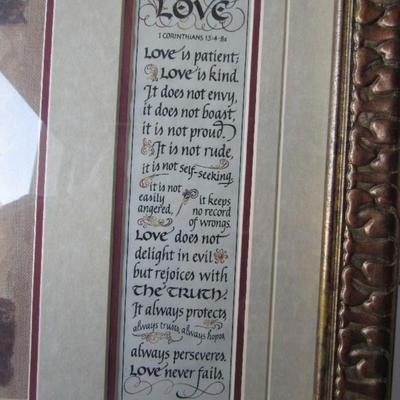 LOVE
1 CORINTHIANS 13:4-8a
LOVE is patient;
LOVE is kind.
It does not envy,
it does not boast,
it is not proud.
It is not rude,
it is not self-seeking,
it is not
easily
angered,
it keeps
no record
of wrongs.
LOVE does not
delight in evil
but rejoices with
THE TRUTH.
It always protects,
always trusts, always hopes,
always perseveres.
LOVE never fails.